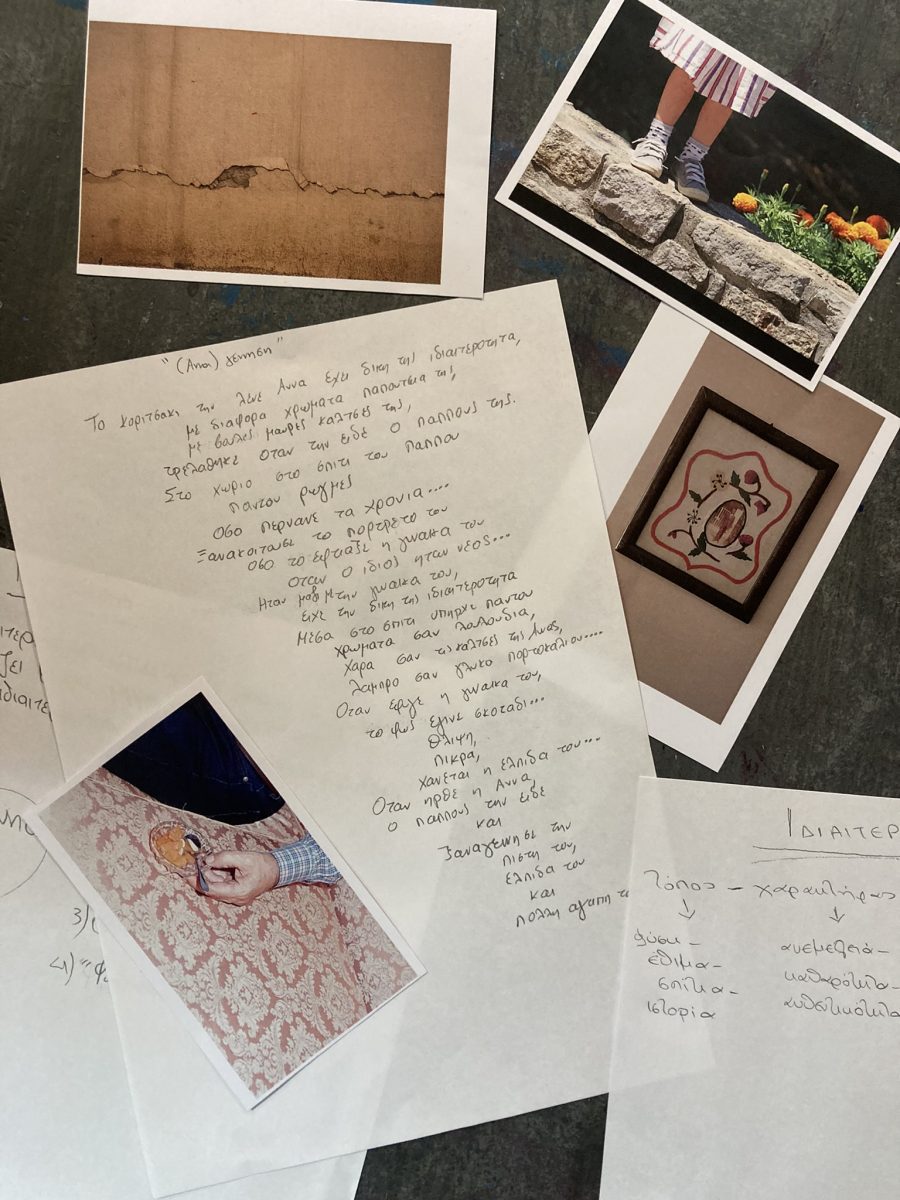 "(Ανα) γεννηση"
Το κοριτσακι την λενε Αννα εχει δικη της ιδιαιτεροτητα,
με διαφορα χρωματα παπουτσια της,
με μαυρες καλτσες της,
τρελαθηκε οταν την ειδε ο παππους της.
Στο χωριο στο σπιτι του παππου
παντου ρωγμες
Οσο περνανε τα χρονια....
Ξανακοιταυσε το πορτρετο του
οσο το εφτιαξε η γυναικα του
οταν ο ιδιος ηταν νεος...
Ηταν μαζι με την γυναικα του,
ειχε την δικη της ιδιαιτεροτητα
Μεσα στο σπιτι υπηρχε παντου
χρωματα σαν λουλουδια,
χαρα σαν τις καλτσες της Αννας,
λαμπρο σαν γλυκο πορτοκαλιου....
Οταν εφυγε η γυναικα του,
το φως εγινε σκοταδι...
Θλιψη,
πικρα,
χανεται η ελπιδα του...
Οταν ηρθε η Αννα,
ο παππους την ειδε
και
ξαναγεννησε την
πιστη του,
ελπιδα του
και
πολλη αγαπη το
3)
4) "φ
Ιδιαιτερ
Τόπος – χαρακτήρας
↓ ↓
φύση – ανεμελιά –
έθιμα – καθαρότητα –
σπίτια – αυθεντικότητα
ιστορία